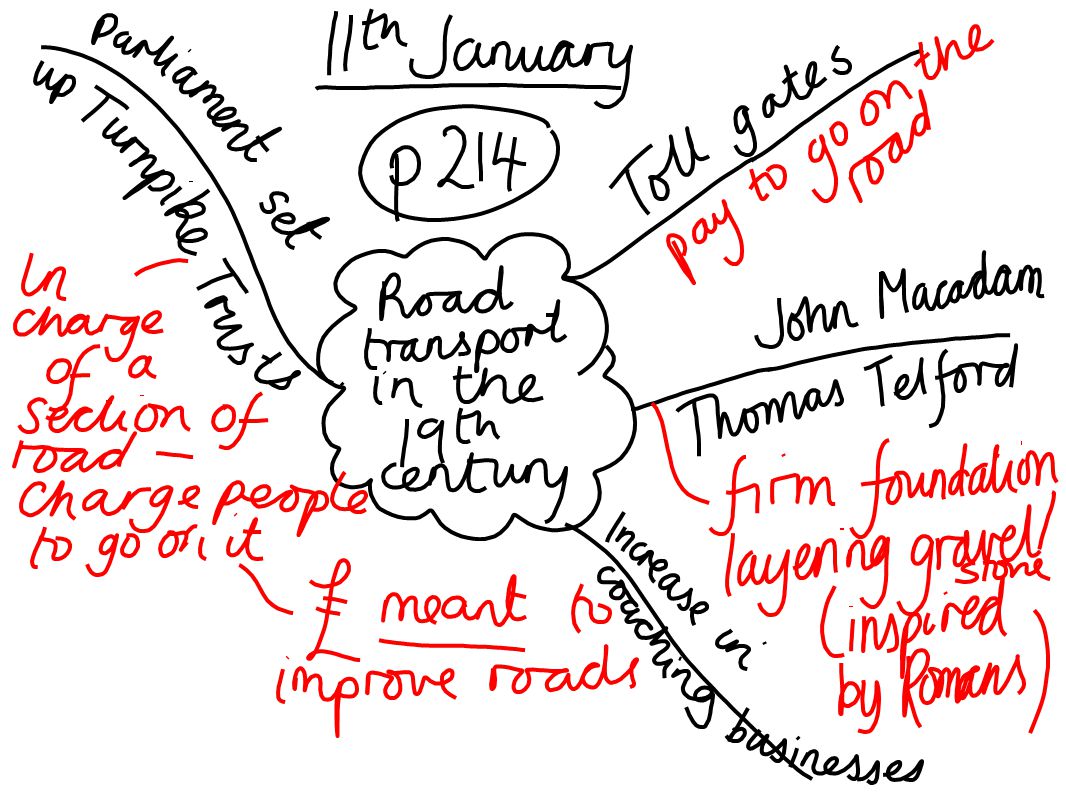 11th January
p 214
Parliament set
up Turnpike Trusts
In
charge
of a
section of
road –
charge people
to go on it
£ meant to
improve roads
Road
transport
in the
19th
century
Toll gates
pay to go on the
road
John Macadam
Thomas Telford
firm foundation
layering gravel/
stone
(inspired
by Romans)
Increase in
coaching businesses